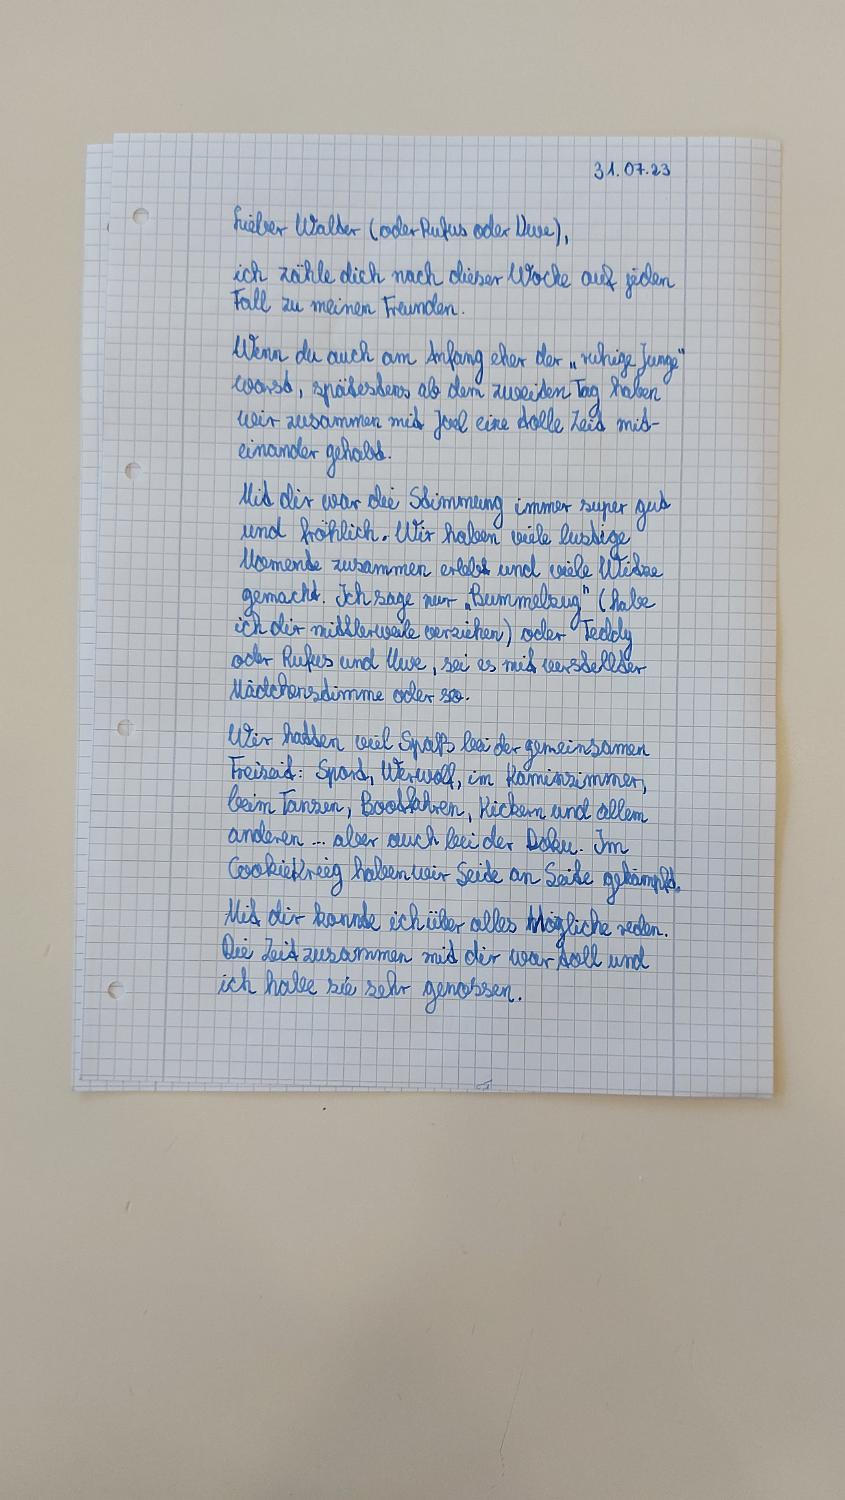 31.07.23
Lieber Walter (oder Rufus oder Uwe),
ich zähle dich nach dieser Woche auf jeden
Fall zu meinen Freunden.
Wenn du auch am Anfang eher der „ruhige Junge"
warst, spätestens ab dem zweiten Tag haben
wir zusammen mit Joel eine tolle Zeit mit-
einander gehabt.
Mit dir war die Stimmung immer super gut
und fröhlich. Wir haben viele lustige
Momente zusammen erlebt und viele Witze
gemacht. Ich sage nur „Bummelzug" (habe
ich dir mittlerweile verziehen) oder Teddy
oder Rufus und Uwe, sei es mit verstellter
Mädchenstimme oder so.
Wir hatten viel Spaß bei der gemeinsamen
Freizeit: Sport, Werwolf, im Kaminzimmer,
beim Tanzen, Bootfahren, Kickern und allem
anderen ... aber auch bei der Doku. Im
CookieKrieg haben wir Seite an Seite gekämpft.
Mit dir konnte ich über alles Mögliche reden.
Die Zeit zusammen mit dir war toll und
ich habe sie sehr genossen.